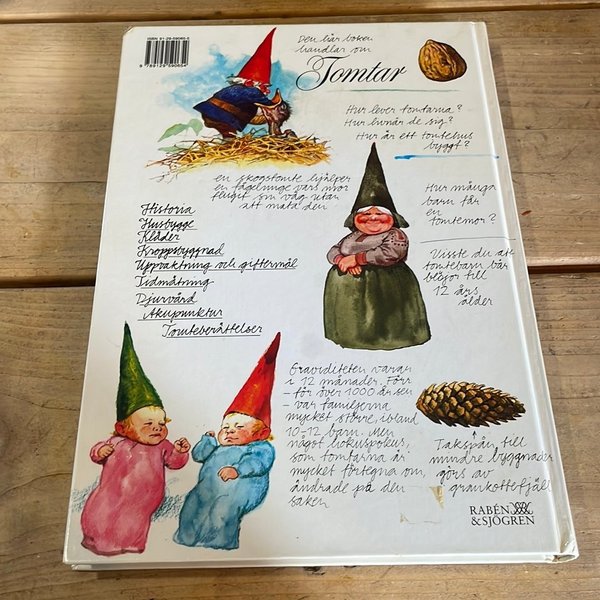 ISBN 91-29-59065-5
9 789129 590654
Den här boken
handlar om
Tomtar
Hur lever tomtarna?
Hur livnär de sig?
Hur är ett tomtehus
byggt?
en skogstomte hjälper
en fågelunge vars mor
flugit sin väg utan
att mata den
Historia
Husbygge
Kläder
Kroppsbyggnad
Uppvaktning och giftermål
Tidmätning
Djurvård
Akupunktur
Tomteberättelser
Hur många
barn får
en
tomtemor?
Visste du att
tomtebarn blir
beigor till
12 års
ålder
Graviditeten varar
i 12 månader. Förr
- för över 1000 år sen
- var familjerna
mycket större, ibland
10-12 barn. Men
något hokuspokus,
som tomtarna är
mycket förtegna om,
ändrade på den
saken
Takspån till
mindre byggnader
görs av
grankottefjäll
RABÉN
&SJÖGREN